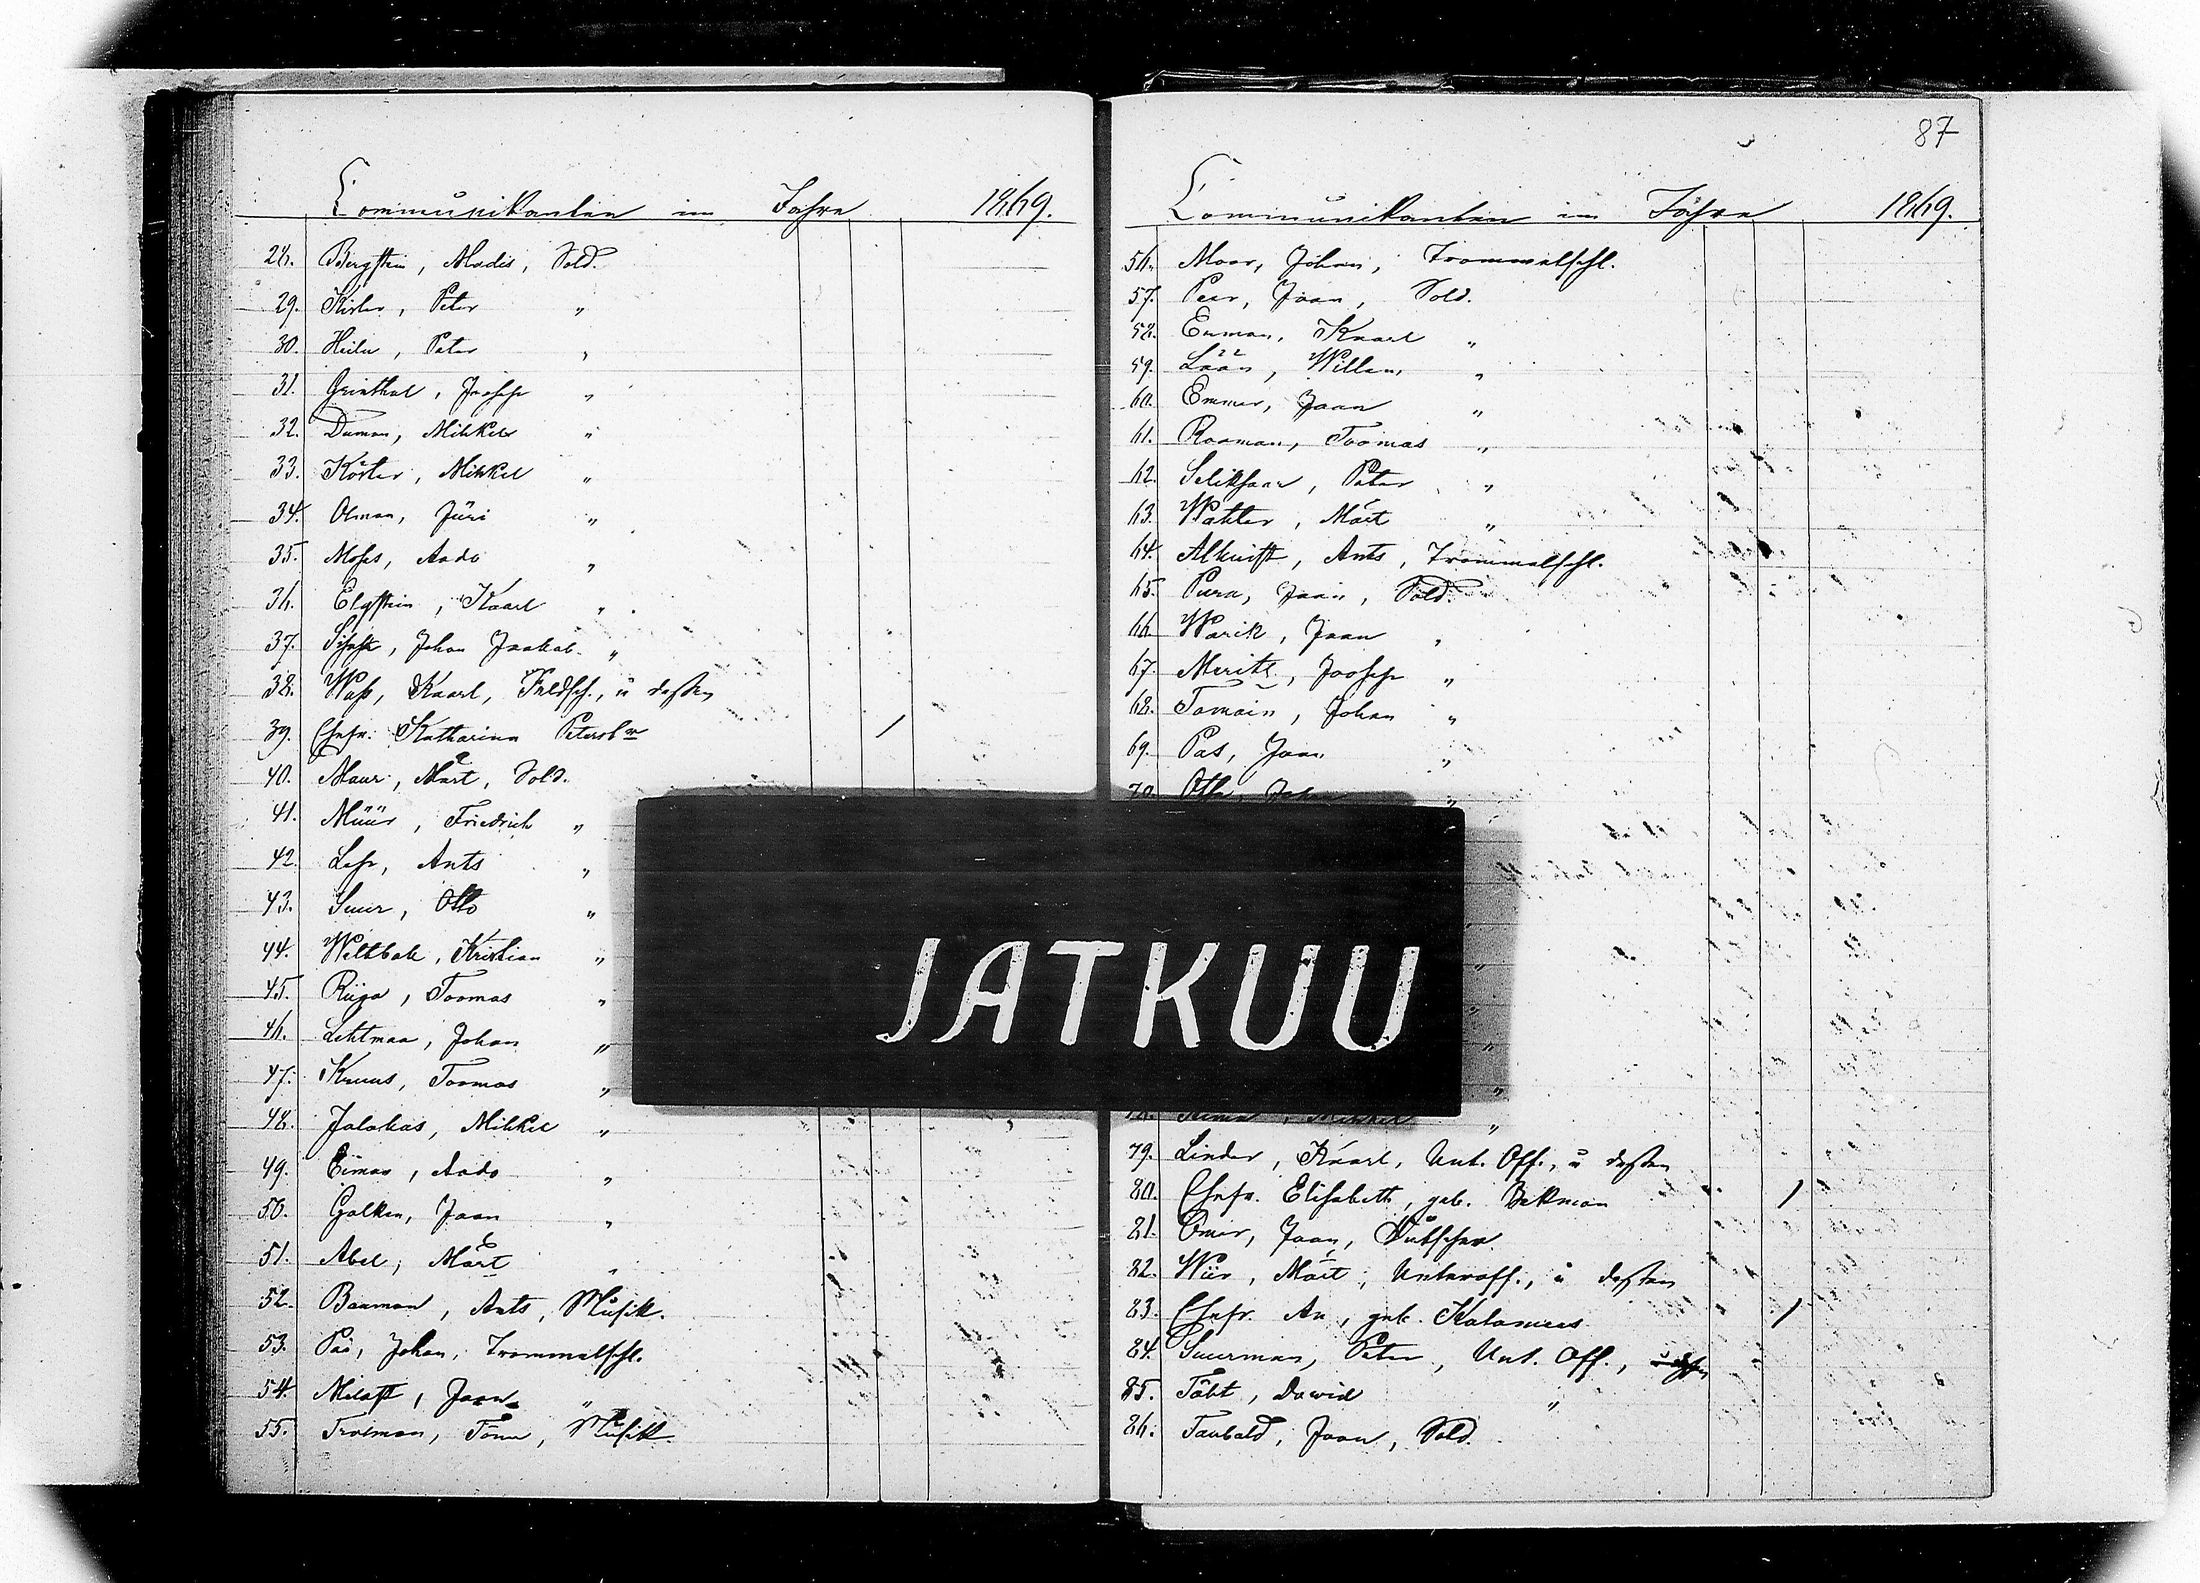 Communikanten im Jahre 1869.
28. Bergstein, Madis, Sold.
29. Kister, Peter "
30. Heiln, Peter "
31. Grinthal, Joosep "
32. Duman, Mihkel "
33. Köster, Mihkel "
34. Olman, Jüri "
35. Moses, Aado "
36. Elgstein, Kaarl "
37. Johan Jaakob "
38. Wass, Kaarl, Feldsch., u dessen
39. Ehefr. Katharina
40. Maur, Märt, Sold.
41. Müür, Friedrich "
42. Ants "
43. Suur, Otto "
44. Kristian "
45. Riiga, Toomas "
46. Lehtmaa, Johan "
47. Kruus, Toomas "
48. Jalakas, Mihkel "
49. Eimas, Aado "
50. Golken, Jaan "
51. Abel, Märt "
52. Bauman, Ants, Musik.
53. Johan, Trommelschl.
54. Jaan "
55. Troman, Tönu, Musik.
87
Communikanten im Jahre 1869.
56. Moor, Johan, Trommelschl.
57. Peer, Jaan, Sold.
58. Enman, Kaarl "
59. Lään, Willem "
60. Emmer, Jaan "
61. Rooman, Toomas "
62. Seliksaar, Peter "
63. Wahter, Märt "
64. Alkwist, Ants, Trommelschl.
65. Pura, Jaan, Sold.
66. Warik, Jaan "
67. Joosep "
68. Tomain, Johan "
69. Pas, Jaan "
70. Otto, Johan "
JATKUU
79. Linder, Kaarl, Unt. Off., u dessen
80. Ehefr. Elisabeth, geb. Bekman
81. Omer, Jaan,
82. Wiir, Märt, Unteroff., u dessen
83. Ehefr. An, geb. Kalamees
84. Suurman, Peter, Unt. Off.,
85. Täht, Dawid "
86. Taubald, Jaan, Sold.